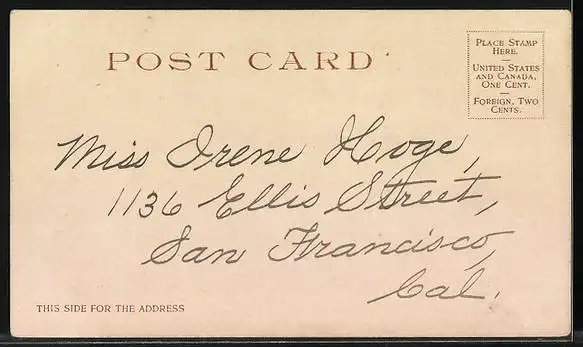 POST CARD
PLACE STAMP
HERE.
UNITED STATES
AND CANADA,
ONE CENT.
FOREIGN, TWO
CENTS.
Miss Irene Hoge,
1136 Ellis Street,
San Francisco,
Cal.
THIS SIDE FOR THE ADDRESS